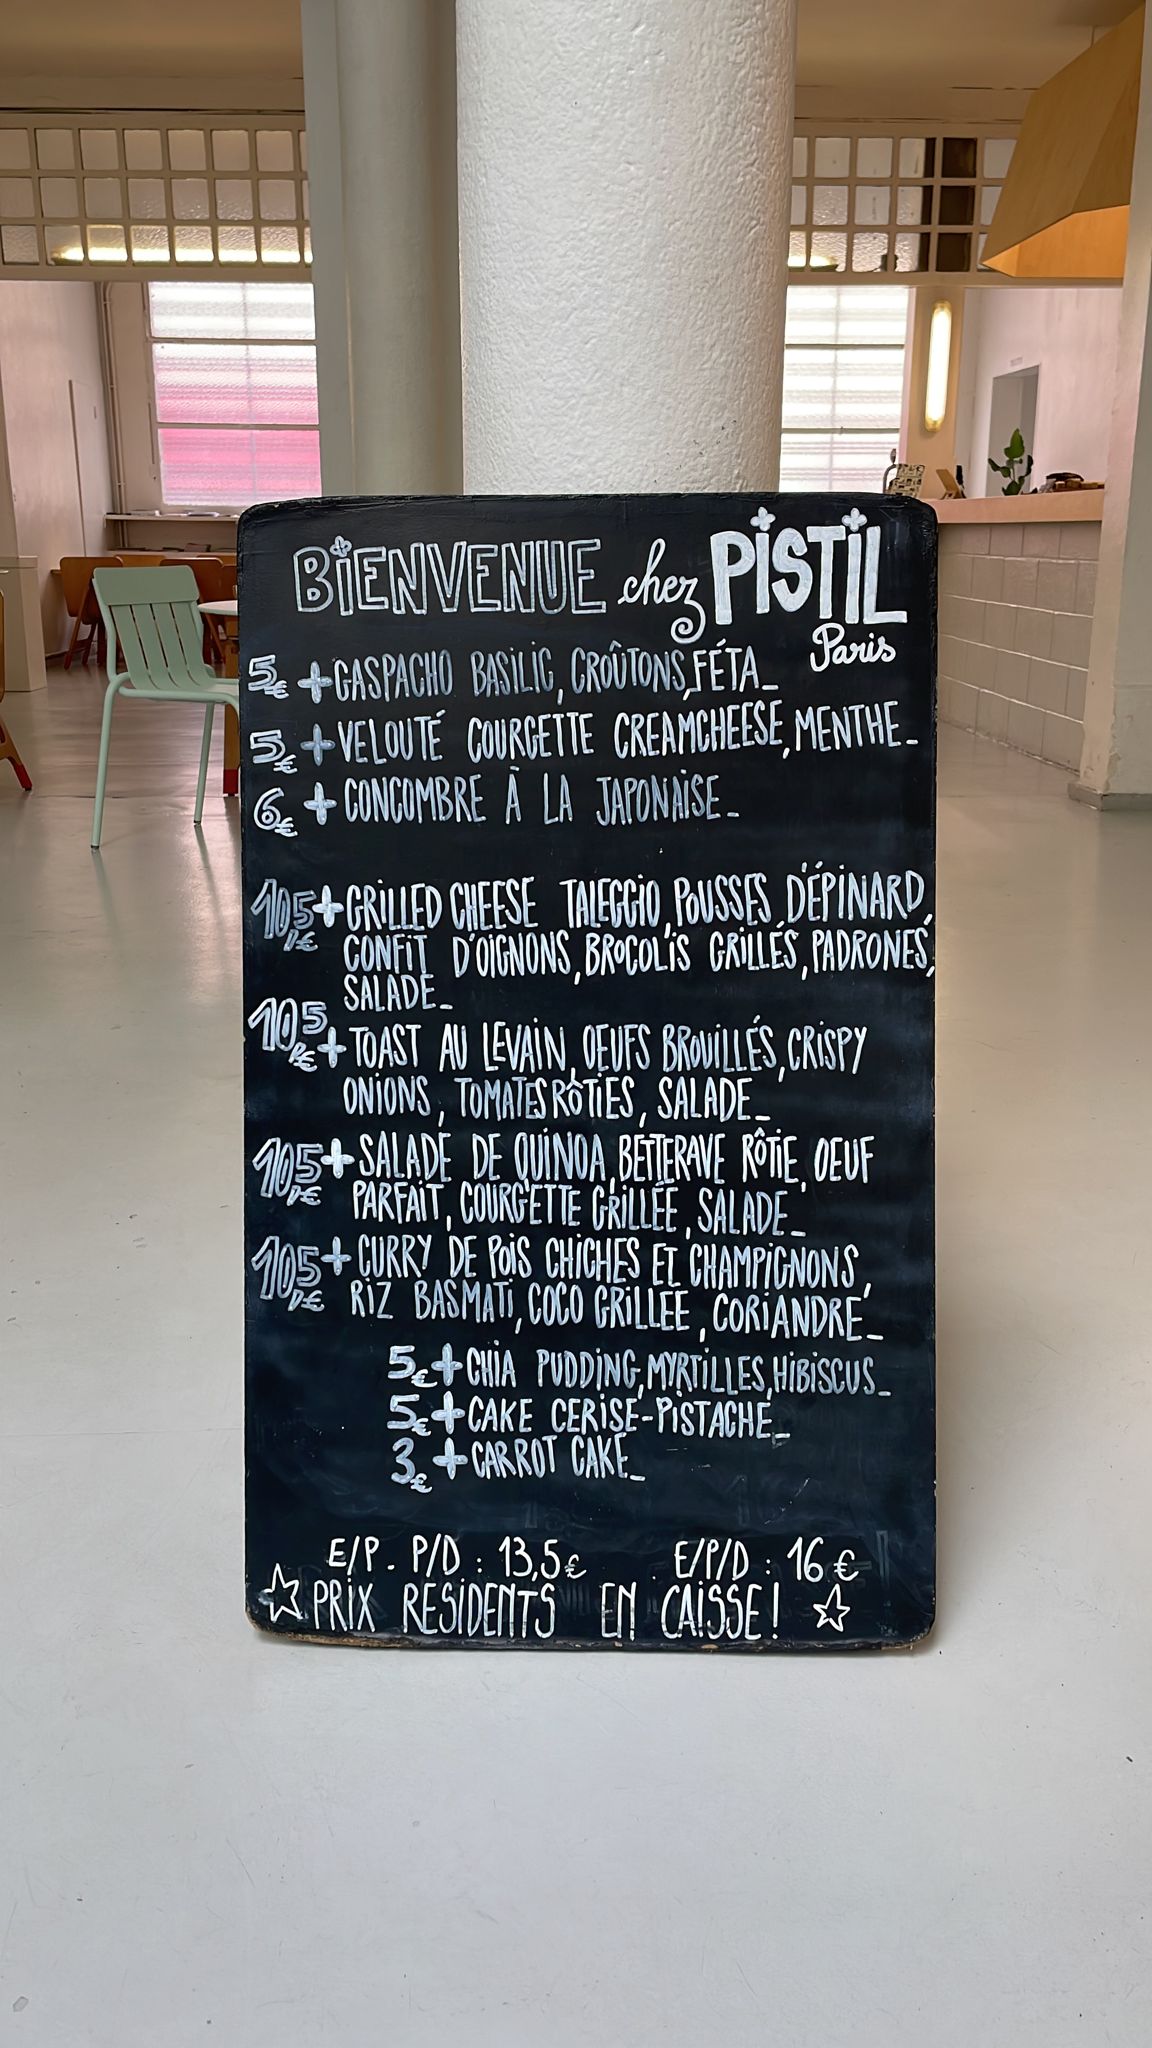 BIENVENUE chez PISTIL
Paris
5€ + GASPACHO BASILIC, CROÛTONS, FÉTA_
5€ + VELOUTÉ COURGETTE CREAMCHEESE, MENTHE_
6€ + CONCOMBRE À LA JAPONAISE_
10,5€ + GRILLED CHEESE TALEGGIO, POUSSES D'ÉPINARD,
CONFIT D'OIGNONS, BROCOLIS GRILLÉS, PADRONES,
SALADE_
10,5€ + TOAST AU LEVAIN, OEUFS BROUILLÉS, CRISPY
ONIONS, TOMATES RÔTIES, SALADE_
10,5€ + SALADE DE QUINOA, BETTERAVE RÔTIE, OEUF
PARFAIT, COURGETTE GRILLÉE, SALADE_
10,5€ + CURRY DE POIS CHICHES ET CHAMPIGNONS,
RIZ BASMATI, COCO GRILLEE, CORIANDRE_
5€ + CHIA PUDDING, MYRTILLES, HIBISCUS_
5€ + CAKE CERISE-PISTACHE_
3€ + CARROT CAKE_
E/P - P/D : 13,5€ E/P/D : 16€
☆ PRIX RESIDENTS EN CAISSE! ☆